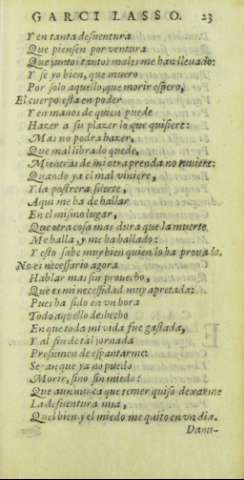 GARCI LASSO. 23
Y en tanta desuentura
Que piensen por ventura
Que juntos tantos males me han lleuado:
Y se yo bien, que muero
Por solo aquello, que morir espero,
El cuerpo està en poder
Y en manos de quien puede
Hazer a su plazer lo que quisiere:
Mas no podra hazer,
Que mal librado quede,
Mientras de mi otra prenda no tuuiere:
Quando ya el mal viniere,
Y la postrera suerte,
Aqui me ha de hallar
En el mismo lugar,
Que otra cosa mas dura que la muerte
Me halla, y me ha hallado:
Y esto sabe muy bien quien lo ha prouado.
No es necessario agora
Hablar mas sin prouecho,
Que es mi necessidad muy apretada:
Pues ha sido en vn hora
Todo aquello deshecho
En que toda mi vida fue gastada,
Y al fin de tal jornada
Presumen de espantarme:
Sepan que ya no puedo
Morir, sino sin miedo:
Que aun nunca que temer quiso dexarme
La desuentura mia,
Que el bien y el miedo me quito en vn dia.
Danu-